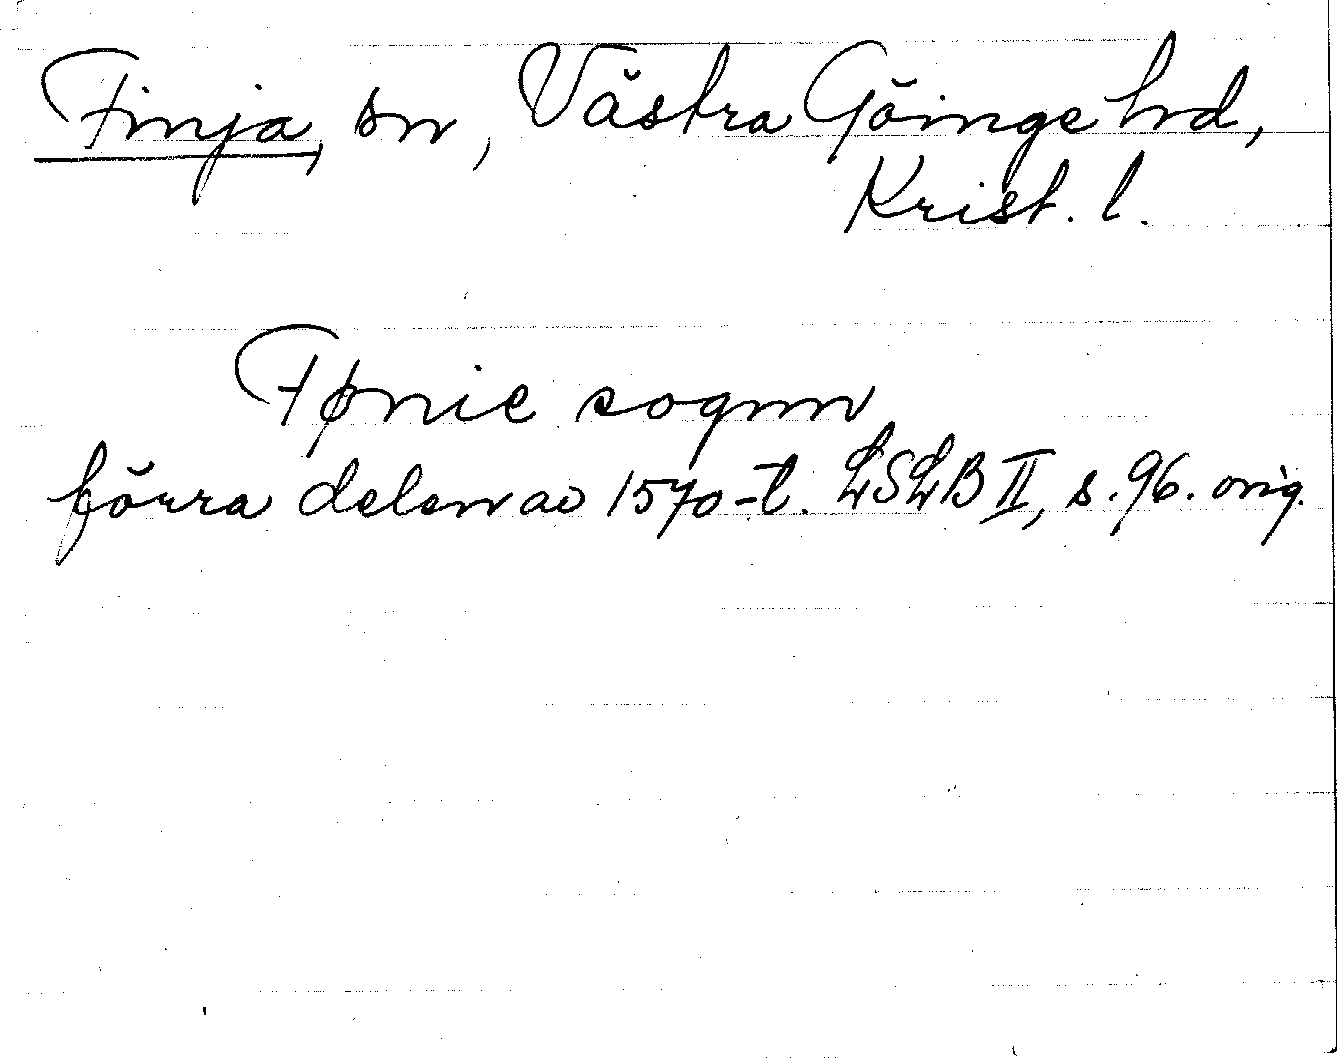 Finja, sn, Västra Göinge hd,
Krist. l.
Fønie sognn
förra delen av 1570-t. LSLB II, s. 96. orig.